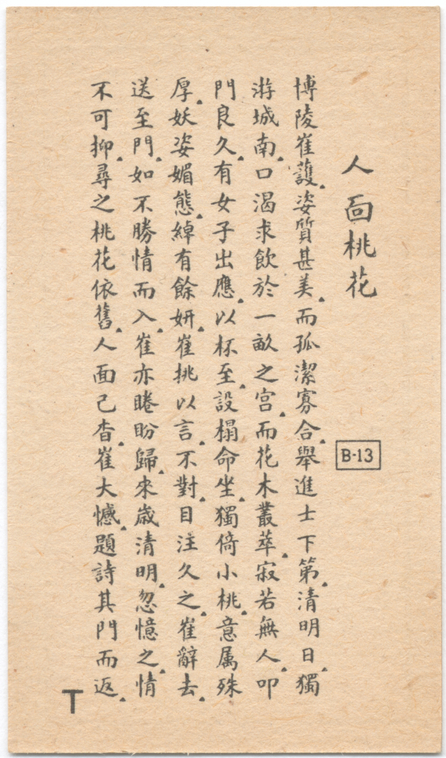 人面桃花
B-13
博陵崔護姿質甚美而孤潔寡合舉進士下第清明日獨
游城南口渴求飲於一畝之宮而花木叢萃寂若無人叩
門良久有女子出應以杯至設榻命坐獨倚小桃意属殊
厚妖姿媚態綽有餘妍崔挑以言不對目注久之崔辭去
送至門如不勝情而入崔亦睠盼歸來歳清明忽憶之情
不可抑尋之桃花依舊人面已杳崔大憾題詩其門而返
T